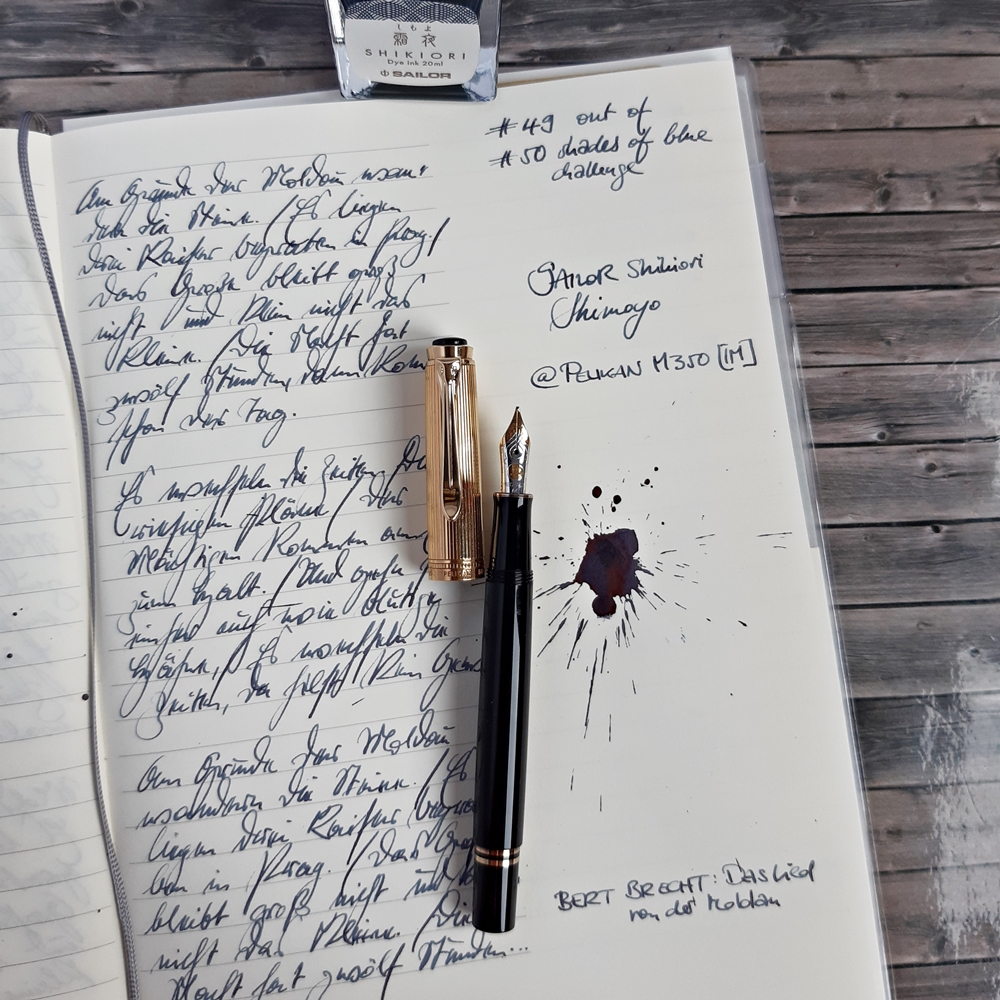 しもよ
霜夜
SHIKIORI
Dye ink 20ml
SAILOR
#49 out of
#50 shades of blue
challenge
SAILOR Shikiori
Shimoyo
@PELIKAN M350 [M]
Am Grunde der Moldau wan-
dern die Steine. / Es liegen
drei Kaiser begraben in Prag. /
Das Große bleibt groß
nicht und klein nicht das
Kleine. / Die Nacht hat
zwölf Stunden, dann kom
schon der Tag.
Es wechseln die Zeiten. Die
riesigen Pläne / der
Mächtigen kommen am
zum Halt. / Und gehn
einher auch wie blutige
Hähne, / Es wechseln die
Zeiten, da hilft kein
Am Grunde der Moldau
wandern die Steine. / Es
liegen drei Kaiser
ben in Prag. / Das
bleibt groß nicht und
nicht das Kleine. / Die
Nacht hat zwölf Stunden...
BERT BRECHT: Das Lied
von der Moldau